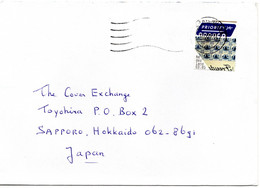 PRIORITY
The Cover Exchange
Toyohira P.O. Box 2
SAPPORO, Hokkaido 062-8691
Japan